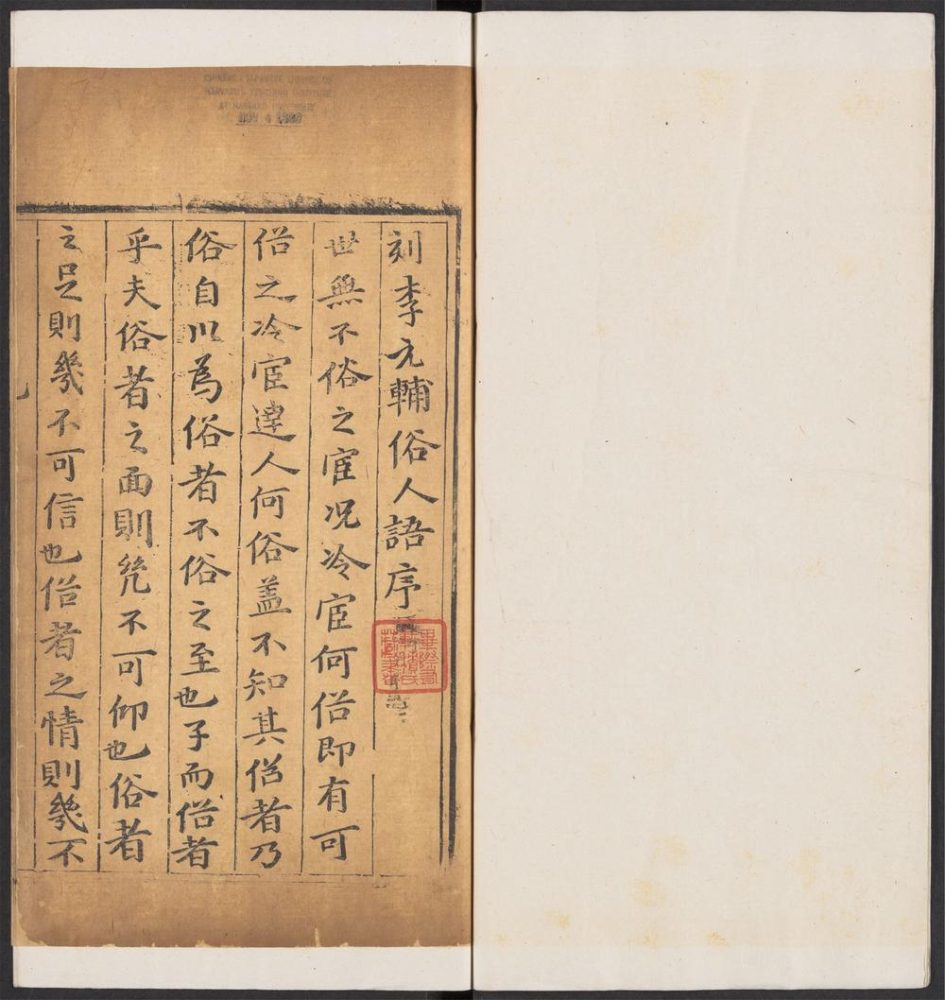 刻李元輔俗人語序
世無不俗之宦况冷宦何俗即有可
俗之冷宦達人何俗蓋不知其俗者乃
俗自以為俗者不俗之至也子而俗者
乎夫俗者之面則幾不可仰也俗者
之足則幾不可信也俗者之情則幾不